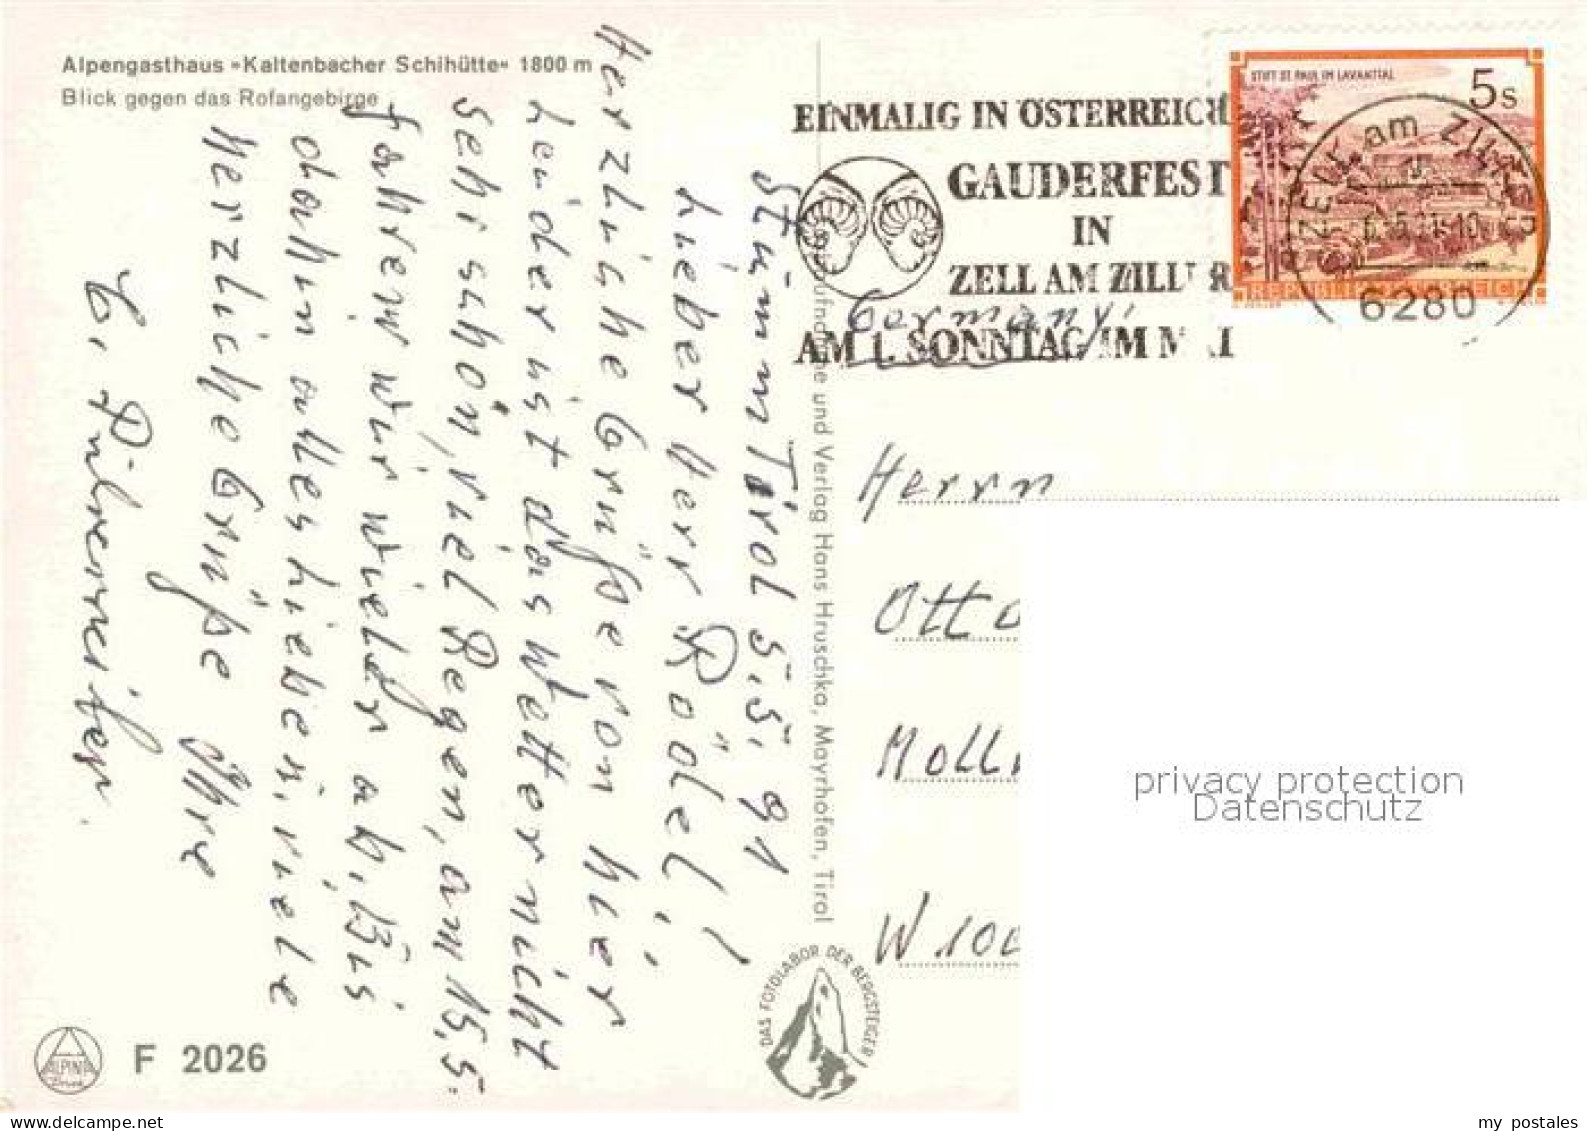 Alpengasthaus »Kaltenbacher Schihütte« 1800 m
Blick gegen das Rofangebirge
Stumm Tirol 5.5.91
Lieber Herr Rödel!
Herzliche Grüße von hier
Leider ist das Wetter nicht
sehr schön, viel Regen, am 15.5.
fahren wir wieder ab, Bis
dahin alles Liebe u. viele
Herzliche Grüße Ihre
EINMALIG IN ÖSTERREICH
GAUDERFEST
IN
ZELL AM ZILLER
AM 1. SONNTAG IM MAI
STIFT ST. PAUL IM LAVANTTAL
5s
REPUBLIK ÖSTERREICH
6280
Germany
Herrn
Otto
W 100
und Verlag Hans Hruschka, Mayrhofen, Tirol
DAS FOTOLABOR DER BERGSTEIGER
ALPINA
Druck
F 2026
privacy protection
Datenschutz
my postales